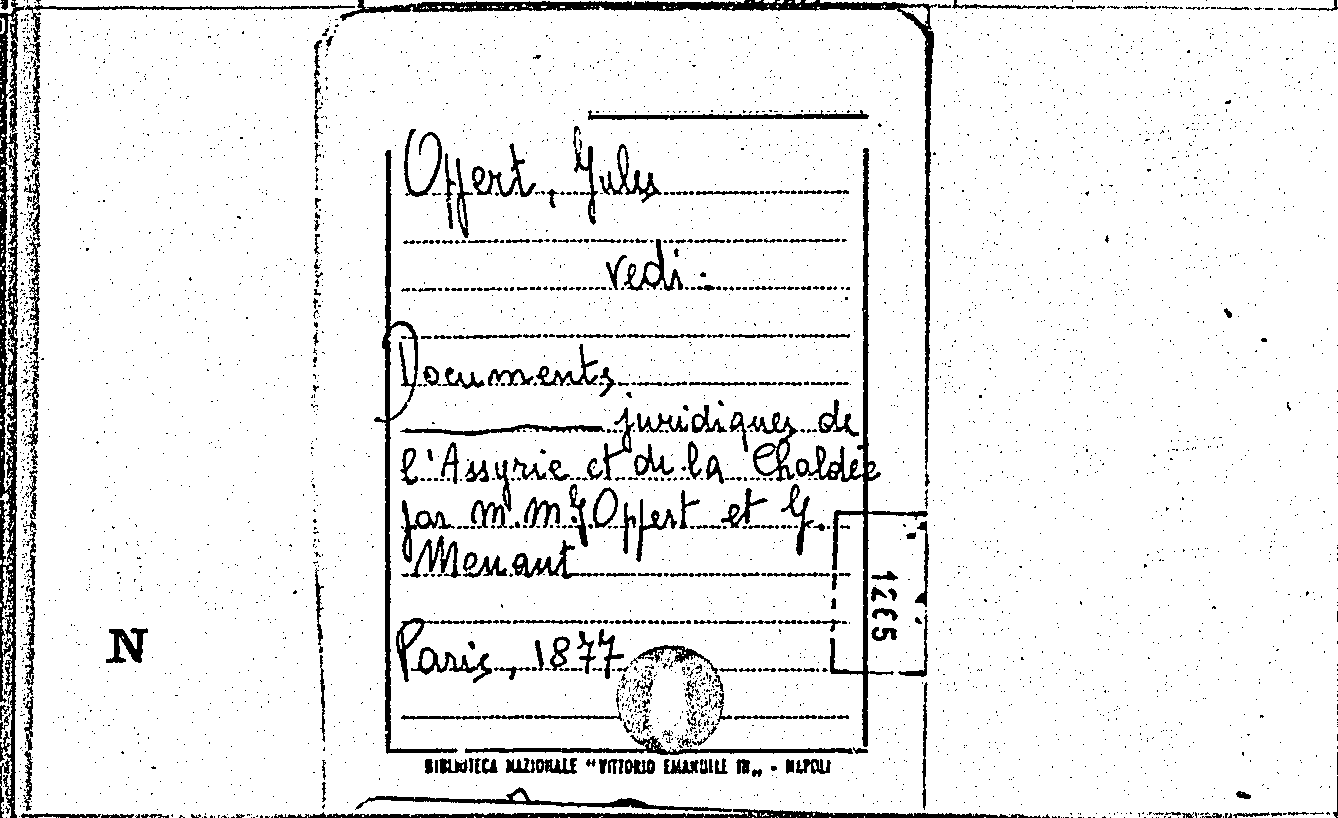 Oppert, Jules
vedi:
Documents
juridiques de
l'Assyrie et de la Chaldée
par m.m J Oppert et J.
Menant
Paris, 1877
N
BIBLIOTECA NAZIONALE "VITTORIO EMANUELE III" - NAPOLI